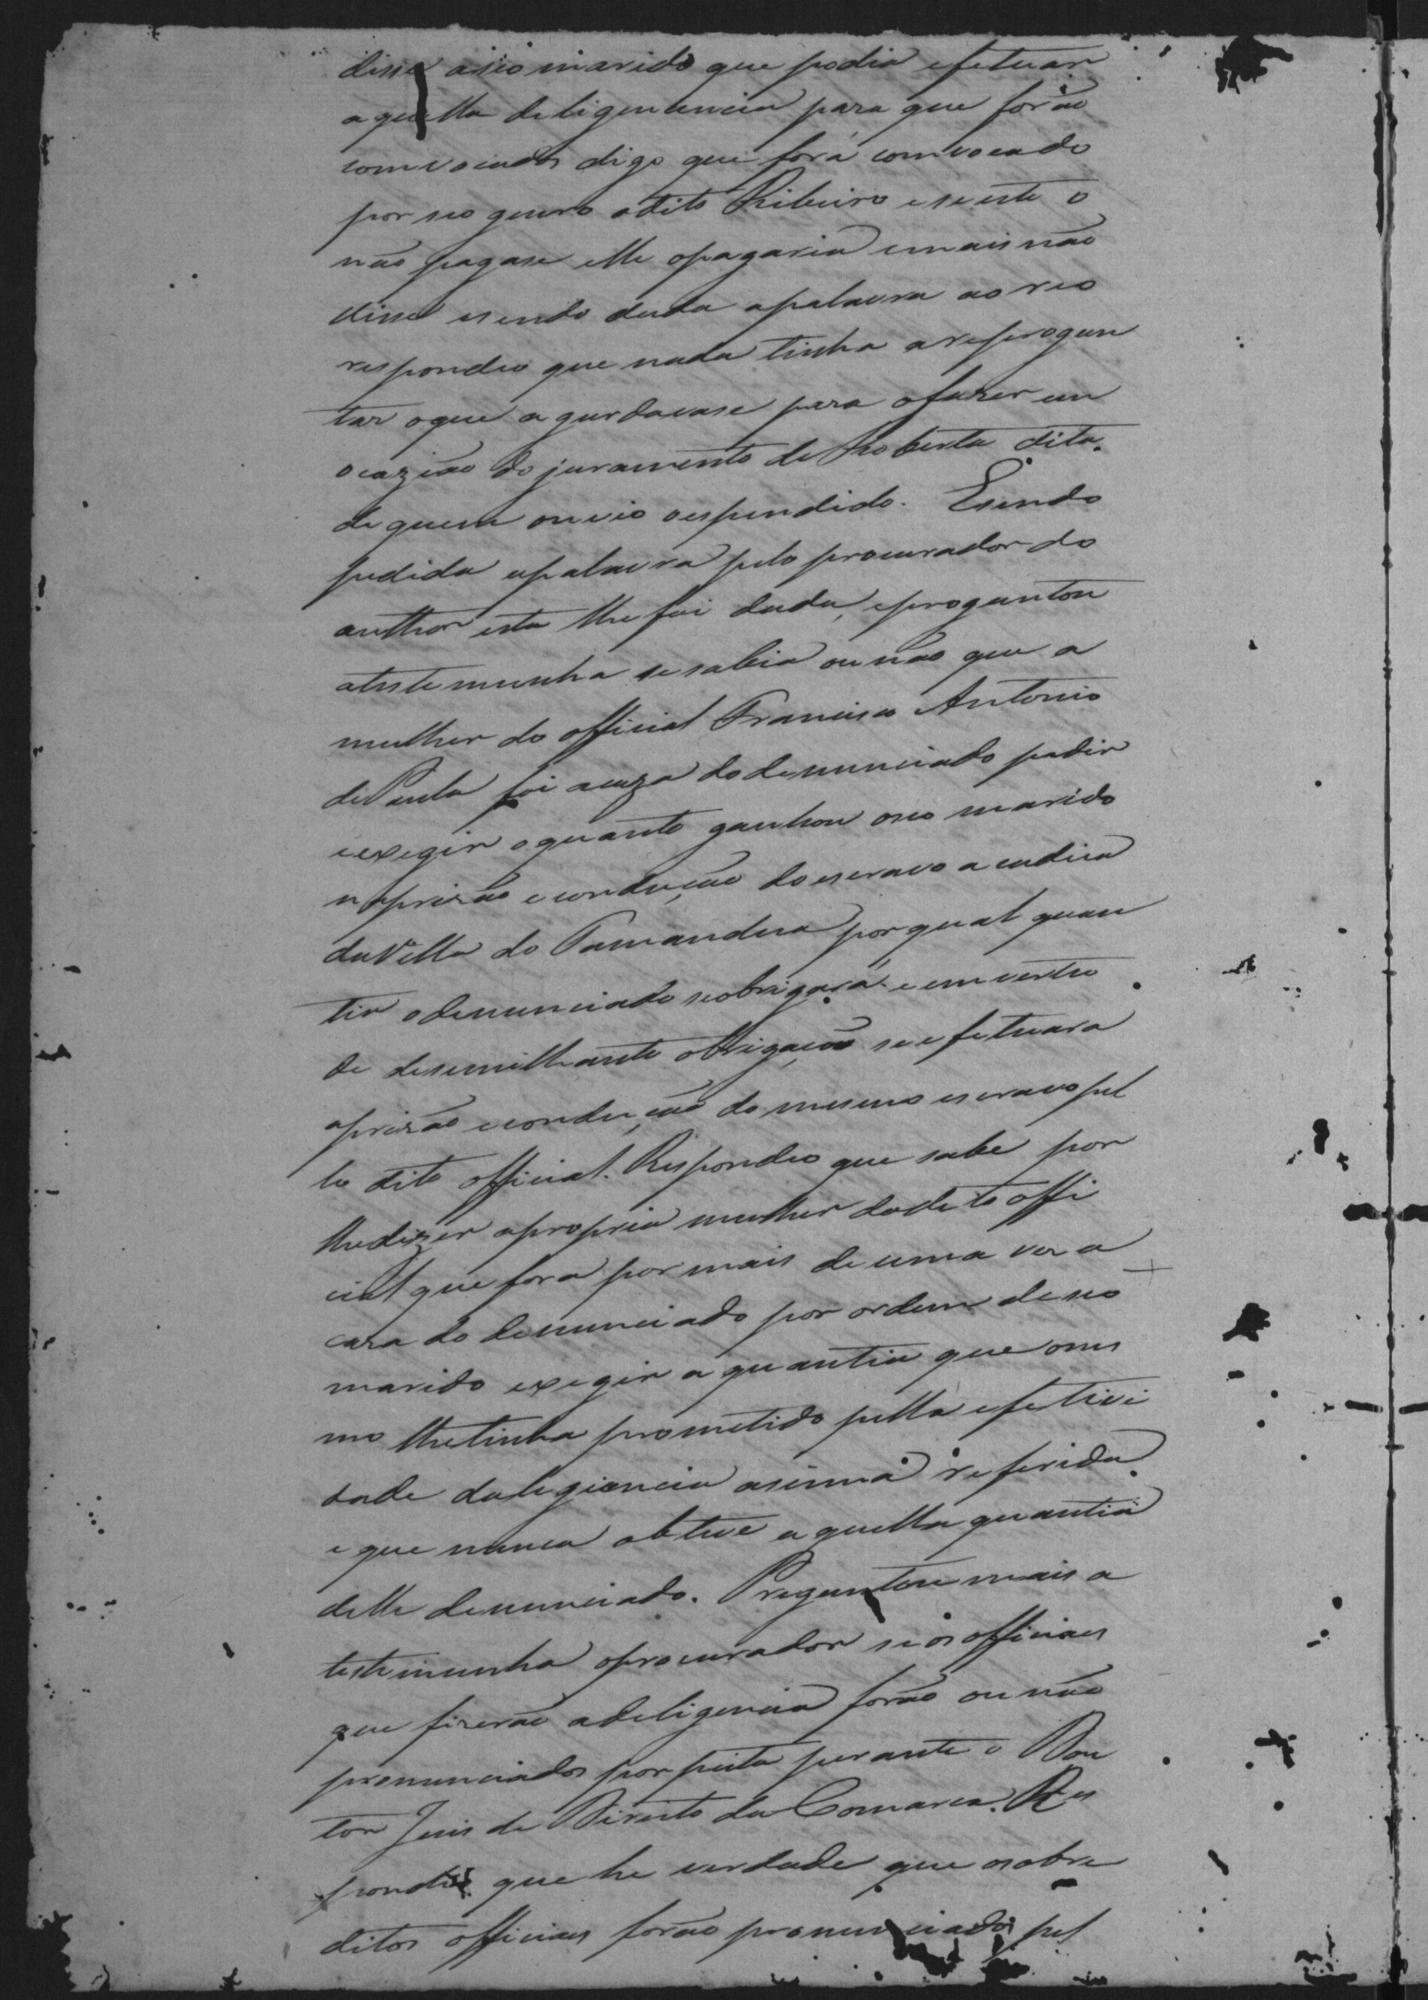 disse a seo marido que podia efetuar
aquella deligencencia para que forão
comvocados digo que fora comvocado
por seo genro o dito Ribeiro e se este o
não pagase elle o pagaria e mais não
disse e sendo dada a palavra ao reo
respondeo que nada tinha a reperogun
tar o que agurdavase para o fazer em
ocazião do juramento de Roberta dita.
de quem ouvio o espendido. E sendo
pedida a palavra pelo procurador do
author esta lhe foi dada, e proguntou
a testemunha se sabia ou não que a
mulher do official Francisco Antonio
de Paula foi a caza do denunciado pedir
e exegir o quanto ganhou o seo marido
na prizão e condução do escravo a cadiea
da Villa do Tamandua por qual quan
tia o denunciado se obrigara. e em vertu
de de semilhante obrigação se efetuara
a prizão e condução do mesmo escravo pel
lo dito official. Respondeo que sabe por
lhe dizer a propria mulher do dito offi
cial que fora por mais de uma vez a
caza do denunciado por ordem de seo
marido exegir a quantia que o mes
mo lhe tinha prometido pella efetivi
dade da legiancia asima referida
e que nunca obteve aquella quantia
delle denunciado. Preguntou mais a
testemunha o procurador se os officiaes
que fizerão a deligencia forão ou não
pronunciados por peita perante o Dou
tor Juis de Direito da Comarca. Res
pondeo que he verdade que os sobre
ditos officiaes forão pronunciados pel